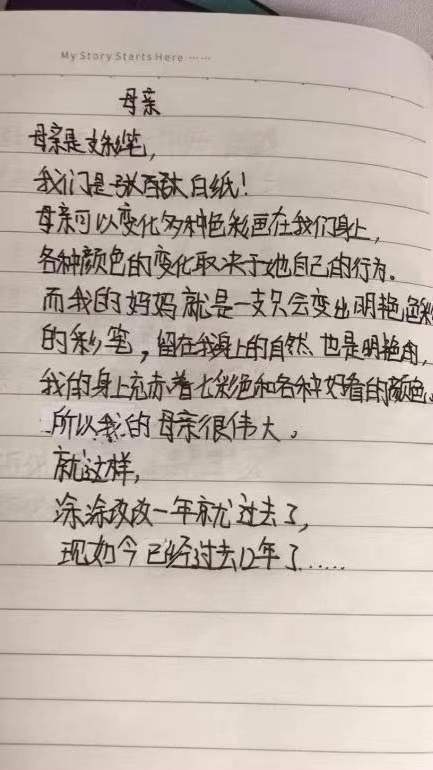 My Story Starts Here ……
母亲
母亲是支彩笔，
我们是一张百张白纸！
母亲可以变化多种色彩画在我们身上，
各种颜色的变化取决于她自己的行为。
而我的妈妈就是一支只会变出明艳色彩
的彩笔，留在我身上的自然也是明艳的，
我的身上充赤着七彩色和各种好看的颜色。
所以我的母亲很伟大。
就这样，
涂涂改改一年就过去了，
现如今已经过去12年了.....